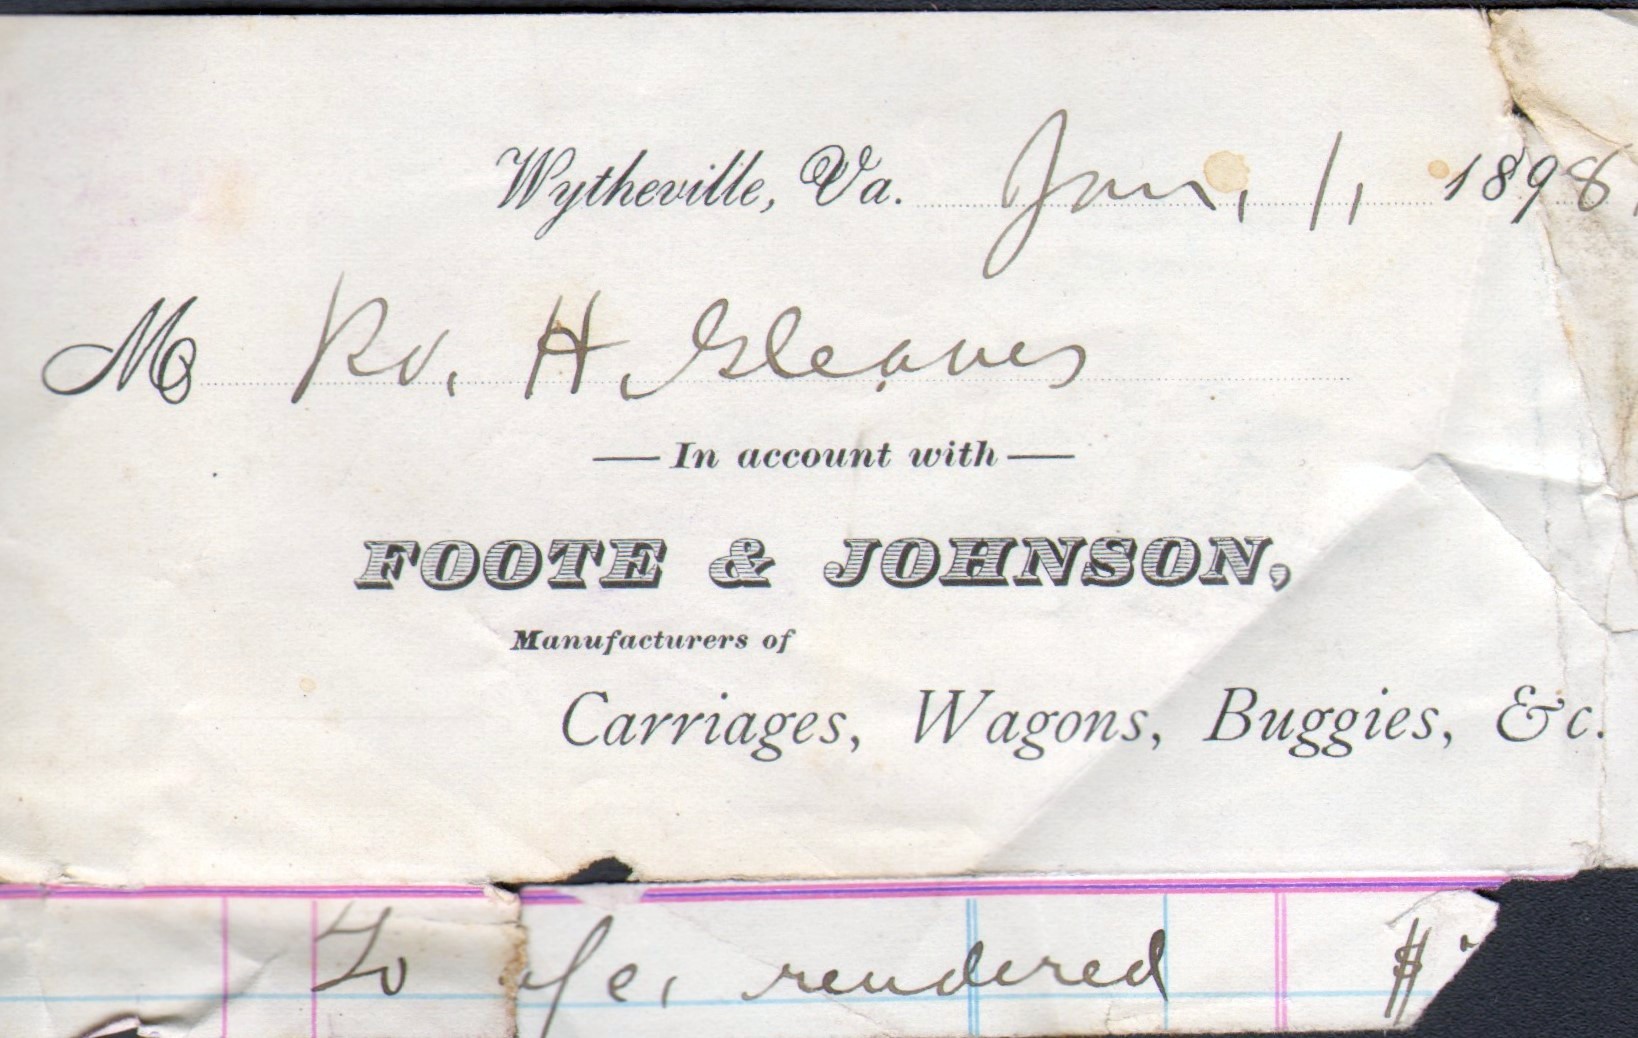 Wytheville, Va. Jan, 1, 1898,
M H. Gleaves
— In account with —
FOOTE & JOHNSON,
Manufacturers of
Carriages, Wagons, Buggies, &c.
To rendered $